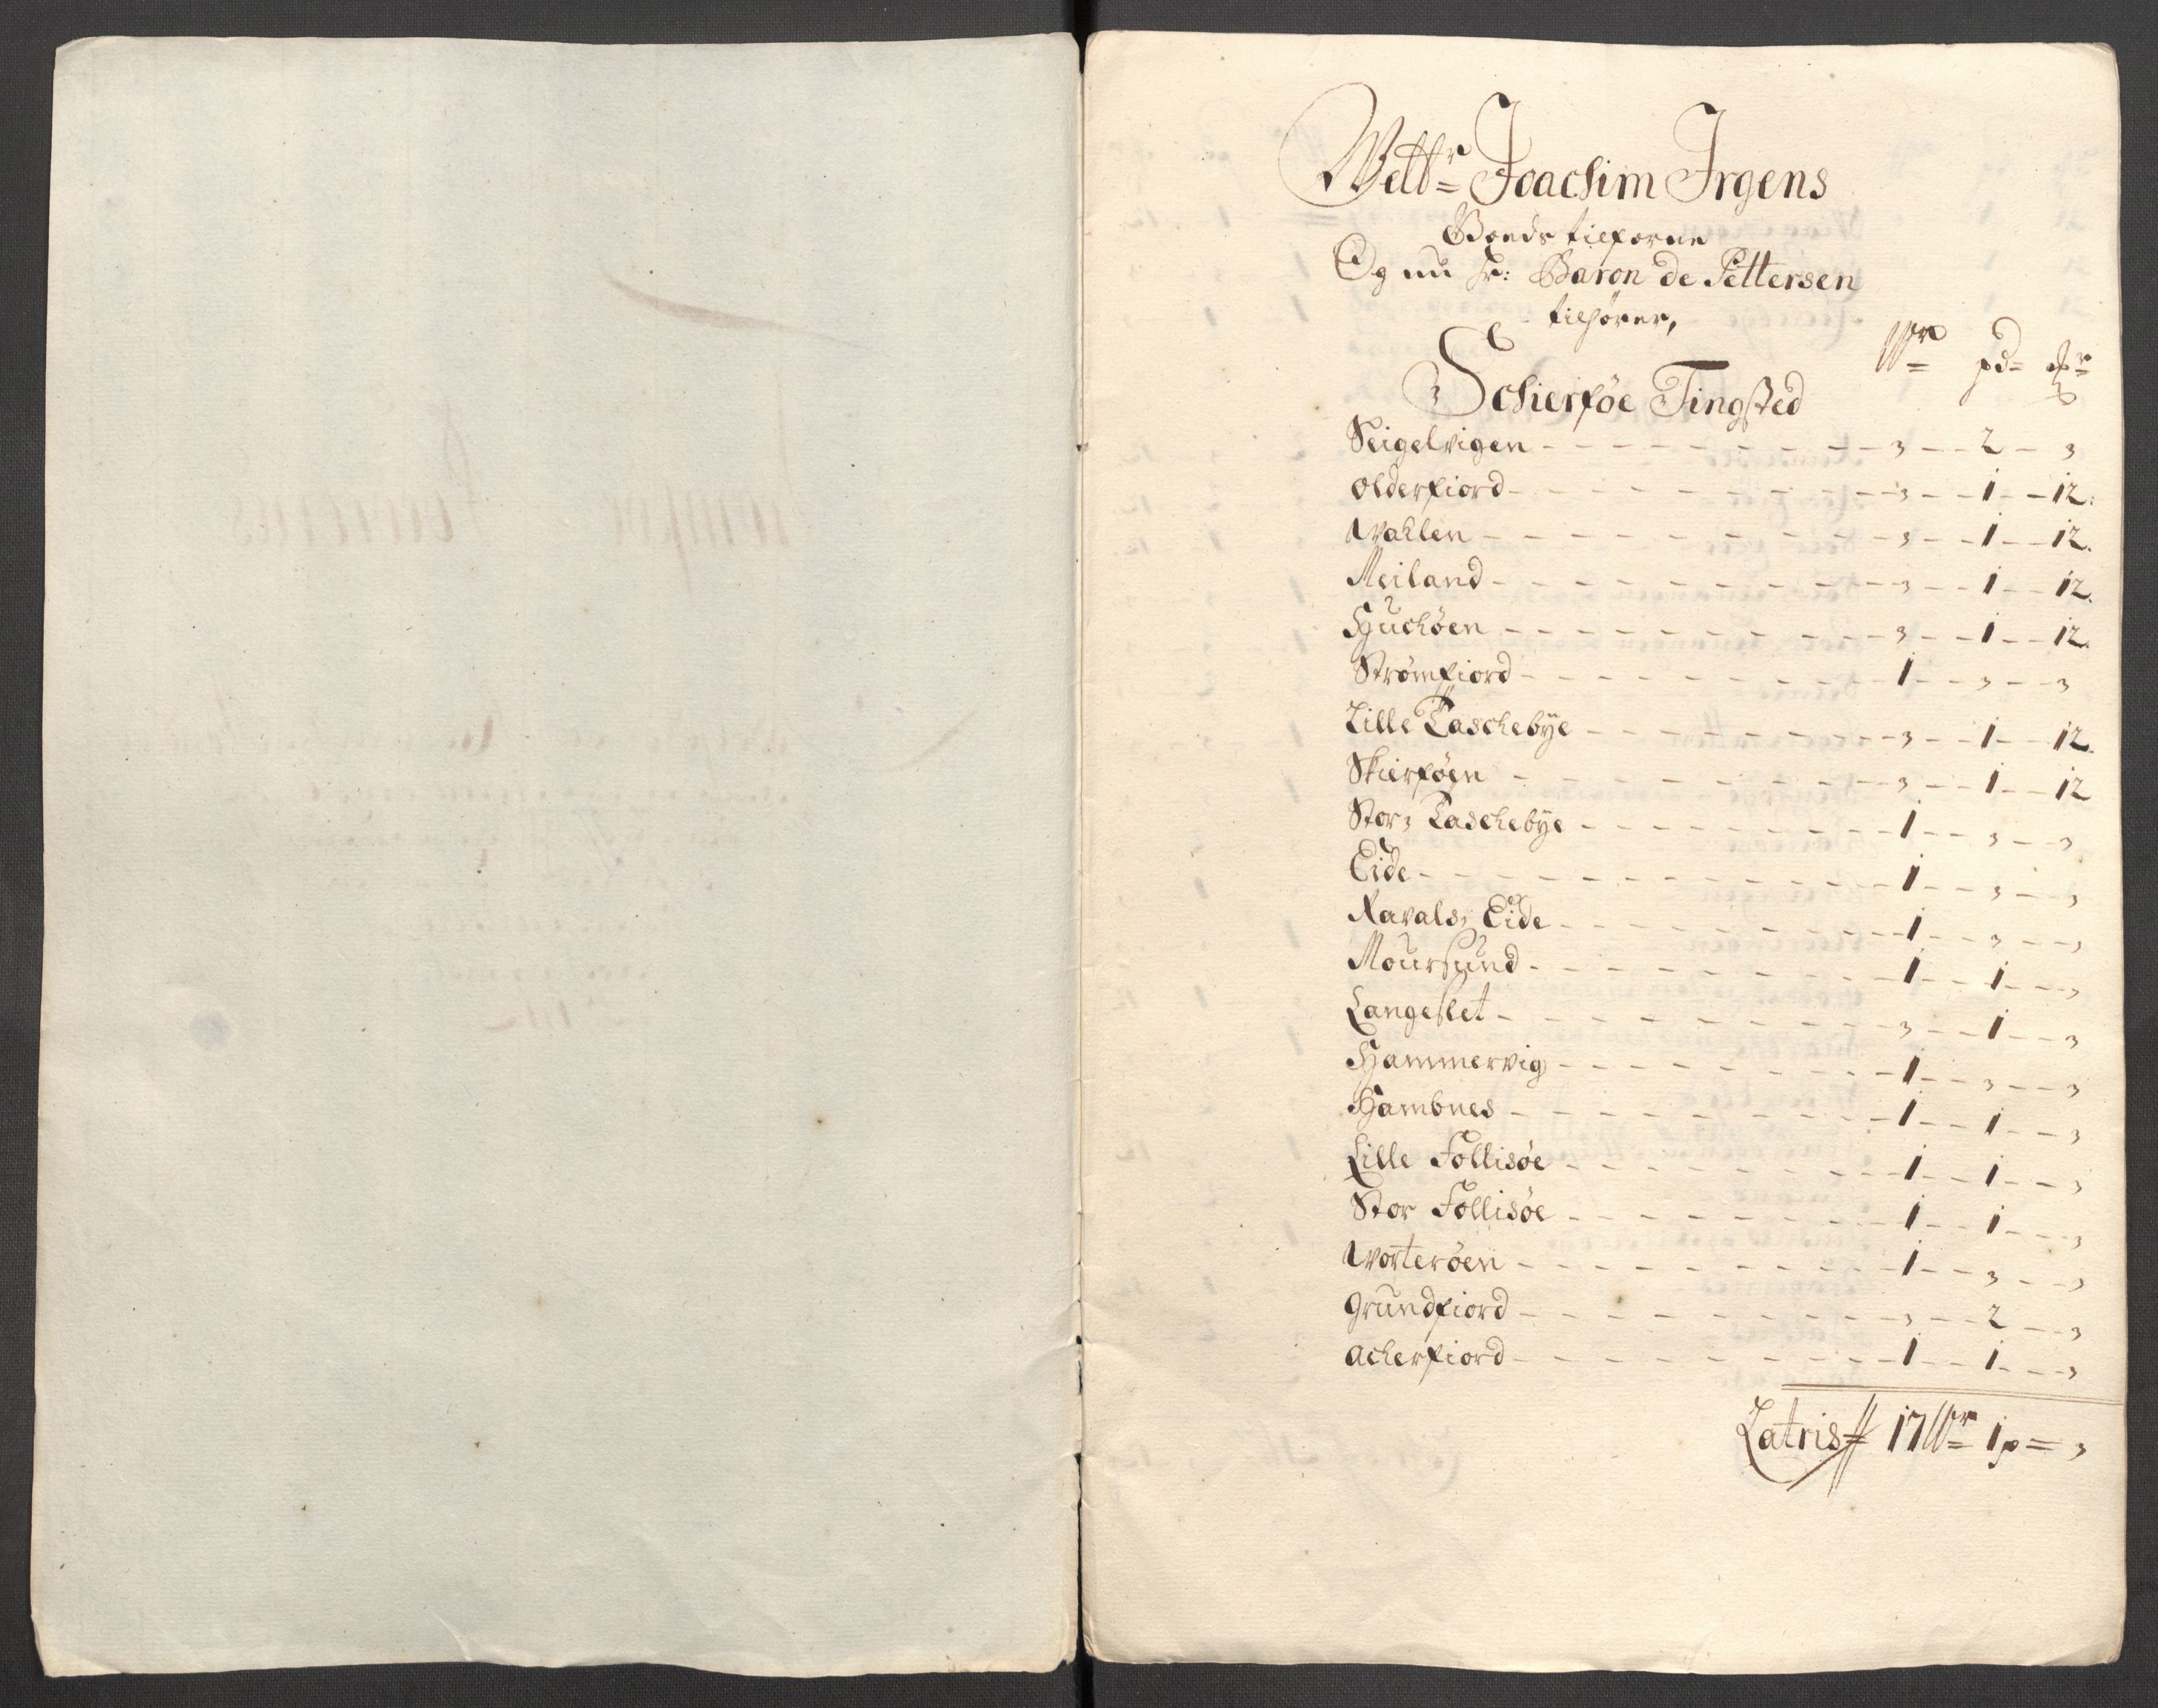 Welb:r Joachim Irgens
Goeds tilforne
Og nu Hr: Baron de Pettersen
tilhører,
Wr pd mkr
Schierføe Tingsted
Seigelvigen - 3 - 2 - 3
Olderfiord - 3 - 1 - 12.
Wahlen - 3 - 1 - 12.
Meiland - 3 - 1 - 12.
Huchøen - 3 - 1 - 12.
Strømfiord - 1 - 3 - 3
Lille Taschebye - 3 - 1 - 12.
Skierføen - 3 - 1 - 12
Stor, Taschebye - 1 - 3 - 3
Eide - 1 - 3 - 3
Ravals, Eide - 1 - 3 - 3
Moursund - 1 - 1 - 3
Langeslet - 3 - 1 - 3
Hammervig - 1 - 3 - 3
Hambnes - 1 - 1 - 3
Lille Follisøe - 1 - 1 - 3
Stor Follisøe - 1 - 1 - 3
Worterøen - 1 - 3 - 3
Grundfiord - 3 - 2 - 3
Acherfiord - 1 - 1 - 3
Latris 17 Wr 1 p = 3